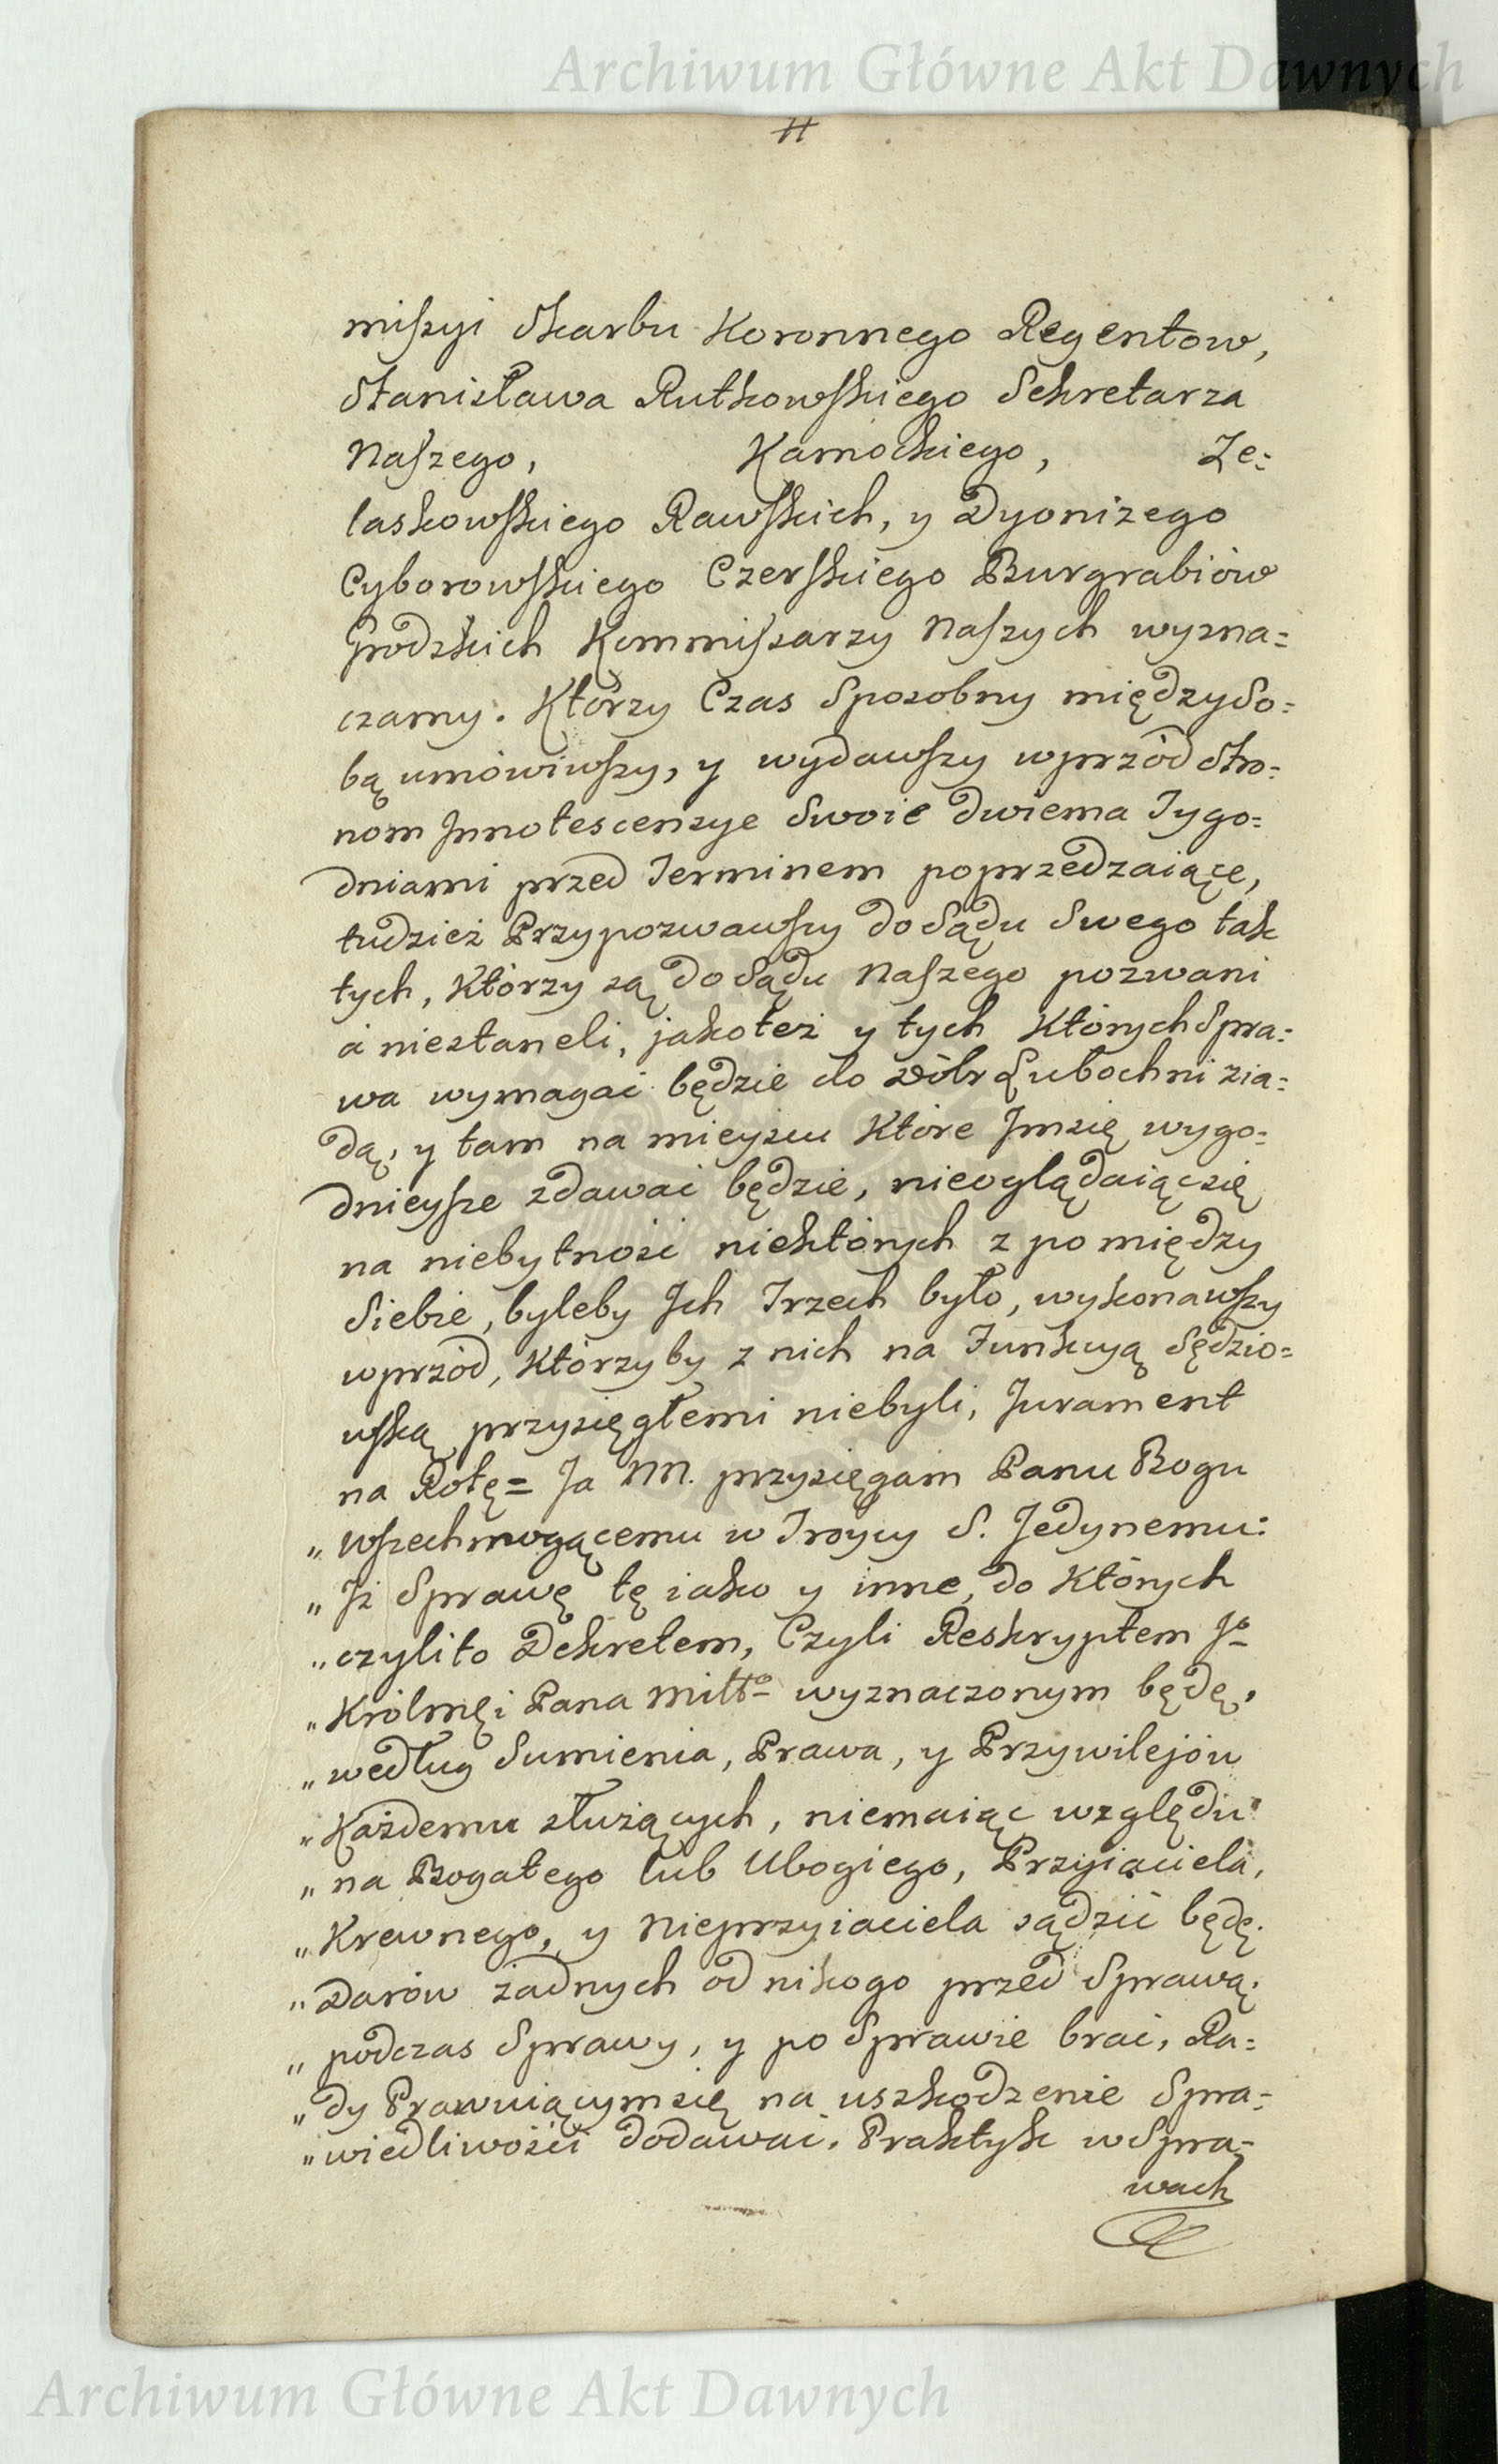 Archiwum Główne Akt Dawnych
missyi Skarbu Koronnego Regentow,
Stanisława Rutkowskiego Sekretarza
Naszego, Kamockiego, Ze=
laskowskiego Rawskich, y Dyonizego
Cyborowskiego Czerskiego Burgrabiów
Grodzkich Kommissarzy Naszych wyzna=
czamy. Którzy Czas Sposobny między So=
bą umówiwszy, y wydawszy wprzód Stro=
nom Innotescensye Swoie dwiema Tygo=
dniami przed Terminem poprzedzaiące,
tudzież Przypozwawszy do Sądu Swego tak
tych, Którzy są do Sądu Naszego pozwani
a niestaneli, jako też y tych Których Spra=
wa wymagać będzie do Dóbr Lubochni zia=
dą, y tam na mieyscu Które Jmsię wygo=
dnieysze zdawać będzie, nieoglądaiąc się
na niebytność niektórych z pomiędzy
Siebie, byleby Ich Trzech było, wykonawszy
wprzód, Którzyby z nich na Funkcyą Sędzio=
wską przysięgłemi niebyli, Jurament
na Rotę= Ja NN. przysięgam Panu Bogu
„ Wszechmogącemu w Troycy S. Jedynemu:
„ Iż Sprawę tę iako y inne, do Których
„ czylito Dekretem, Czyli Reskryptem Jo
„ Królmći Pana Miłło wyznaczonym będę,
„ według Sumienia, Prawa, y Przywilejów
„ Każdemu służących, niemaiąc względu
„ na Bogatego lub Ubogiego, Przyiaciela,
„ Krewnego, y Nieprzyiaciela sądzić będę.
„ Darów żadnych od nikogo przed Sprawą,
„ podczas Sprawy, y po Sprawie brać, Ra=
„ dy Prawuiącym się na uszkodzenie Spra=
„ wiedliwości dodawać, Praktyk w Spra=
wach
Archiwum Główne Akt Dawnych